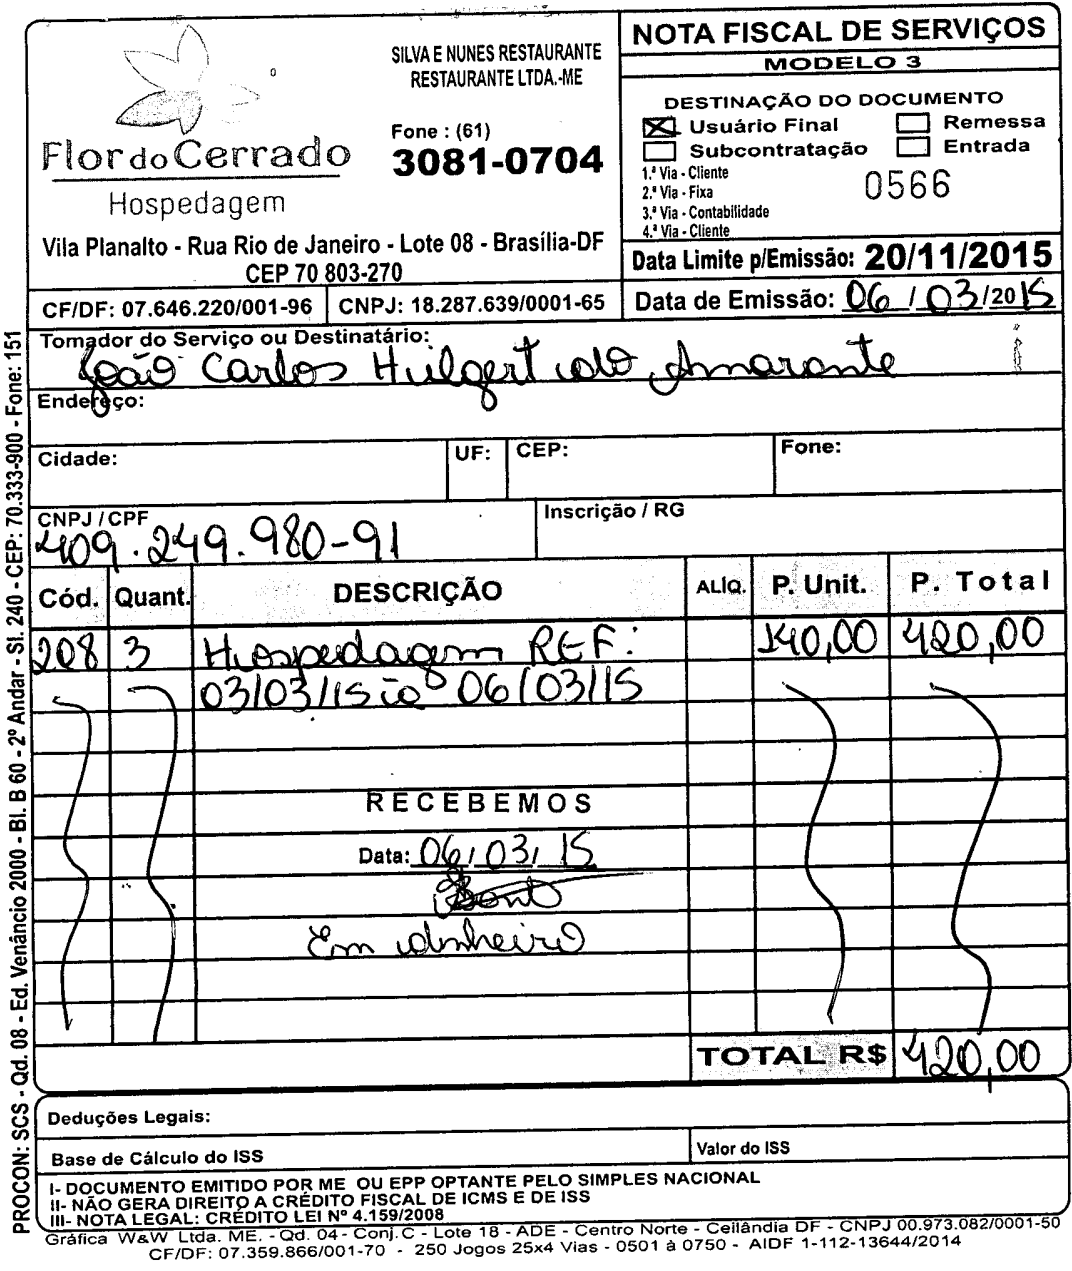 Flor do Cerrado
Hospedagem
SILVA E NUNES RESTAURANTE
RESTAURANTE LTDA.-ME
Fone : (61)
3081-0704
Vila Planalto - Rua Rio de Janeiro - Lote 08 - Brasília-DF
CEP 70 803-270
CF/DF: 07.646.220/001-96 CNPJ: 18.287.639/0001-65
NOTA FISCAL DE SERVIÇOS
MODELO 3
DESTINAÇÃO DO DOCUMENTO
Usuário Final Remessa
Subcontratação Entrada
1.ª Via - Cliente
2.ª Via - Fixa
3.ª Via - Contabilidade
4.ª Via - Cliente
0566
Data Limite p/Emissão: 20/11/2015
Data de Emissão: 06/03/2015
Tomador do Serviço ou Destinatário:
João Carlos Hulgert do Amarante
Endereço:
Cidade: UF: CEP: Fone:
CNPJ / CPF Inscrição / RG
409.249.980-91
Cód. Quant. DESCRIÇÃO ALÍQ. P. Unit. P. Total
208 3 Hospedagem REF: 140,00 420,00
03/03/15 à 06/03/15
RECEBEMOS
Data: 06/03/15
Em dinheiro
TOTAL R$ 420,00
Deduções Legais:
Base de Cálculo do ISS Valor do ISS
I- DOCUMENTO EMITIDO POR ME OU EPP OPTANTE PELO SIMPLES NACIONAL
II- NÃO GERA DIREITO A CRÉDITO FISCAL DE ICMS E DE ISS
III- NOTA LEGAL: CRÉDITO LEI Nº 4.159/2008
Gráfica W&W Ltda. ME. - Qd. 04 - Conj. C - Lote 18 - ADE - Centro Norte - Ceilândia DF - CNPJ 00.973.082/0001-50
CF/DF: 07.359.866/001-70 - 250 Jogos 25x4 Vias - 0501 à 0750 - AIDF 1-112-13644/2014
PROCON: SCS - Qd. 08 - Ed. Venâncio 2000 - Bl. B 60 - 2º Andar - Sl. 240 - CEP: 70.333-900 - Fone: 151